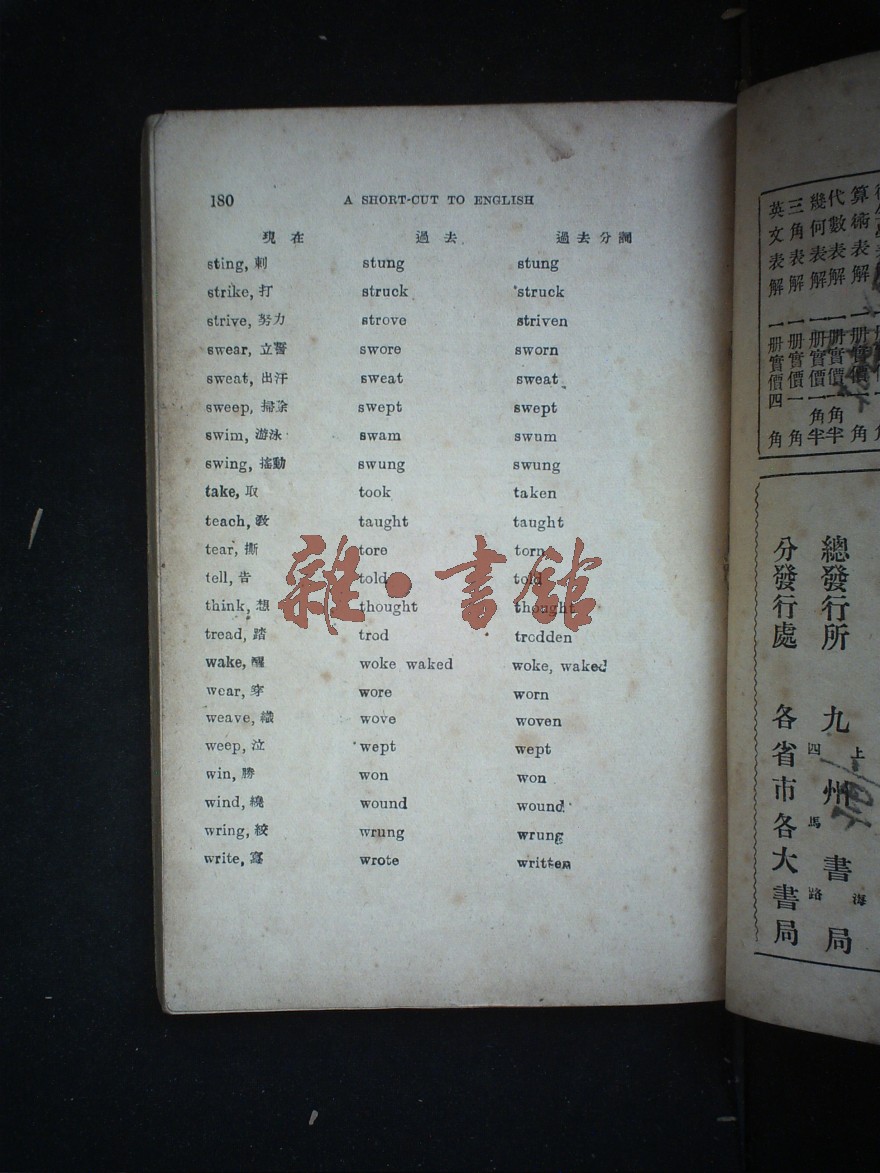 180 A SHORT-CUT TO ENGLISH
現在 過去 過去分詞
sting, 刺 stung stung
strike, 打 struck struck
strive, 努力 strove striven
swear, 立誓 swore sworn
sweat, 出汗 sweat sweat
sweep, 掃除 swept swept
swim, 游泳 swam swum
swing, 搖動 swung swung
take, 取 took taken
teach, 教 taught taught
tear, 撕 tore torn
tell, 告 told told
think, 想 thought thought
tread, 踏 trod trodden
wake, 醒 woke waked woke, waked
wear, 穿 wore worn
weave, 織 wove woven
weep, 泣 wept wept
win, 勝 won won
wind, 繞 wound wound
wring, 絞 wrung wrung
write, 寫 wrote written
雜·書館
算術表解 一册實價一角
代數表解 一册實價一角半
幾何表解 一册實價一角半
三角表解 一册實價一角
英文表解 一册實價四角
總發行所 上海四馬路 九州書局
分發行處 各省市各大書局